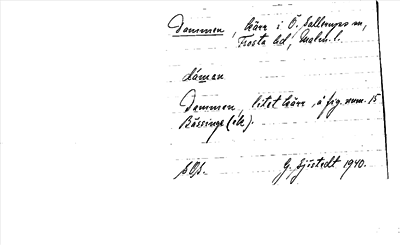 Dammen, kärr i Ö. Sallerups sn,
Frosta hd, Malm. l.
dáman
Dammen, litet kärr, å fig. num. 15
Bässinge (ek).
SOS. G. Sjöstedt 1940.